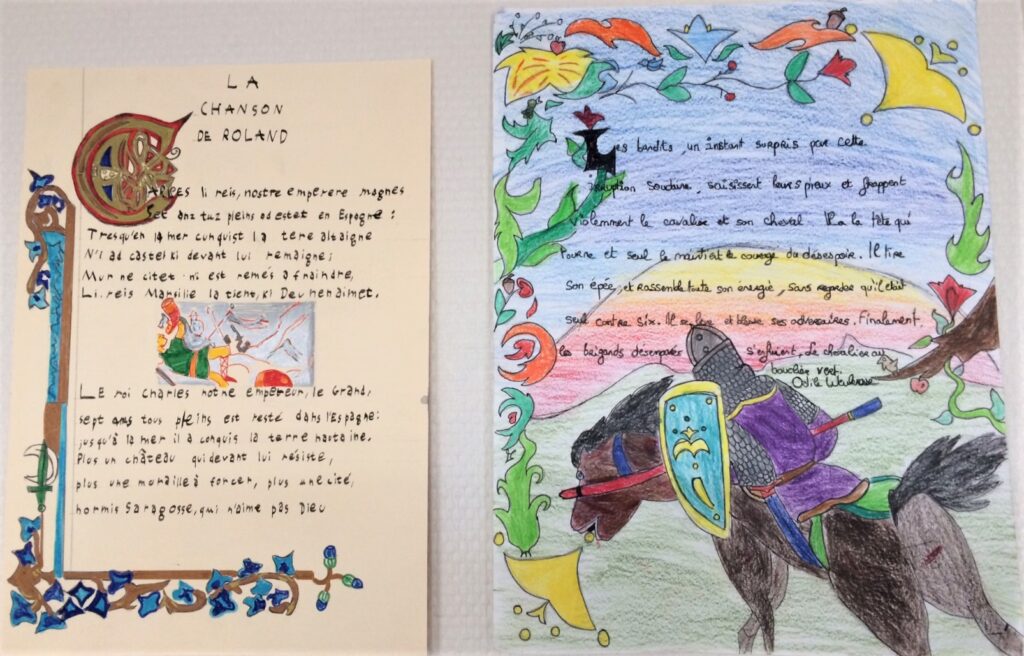 LA
CHANSON
DE ROLAND
CARLES li reis, nostre emperere magnes
Set anz tuz pleins ad estet en Espagne :
Tresqu'en la mer cunquist la tere altaigne
N'i ad castel ki devant lui remaigne ;
Mur ne citet ni est remés a fraindre,
Li reis Marsilie la tient, ki Deu nenaimet.
LE roi Charles notre empereur, le Grand,
sept ans tous pleins est resté dans l'Espagne :
jusqu'à la mer il a conquis la terre hautaine.
Plus un château qui devant lui résiste,
plus une muraille à forcer, plus une cité,
hormis Saragosse, qui n'aime pas Dieu
Les bandits, un instant surpris par cette
soudaine, saisissent leurs pieux et frappent
violemment le cavalier et son cheval. Il a la tête qui
tourne et seul le maintient le courage du désespoir. Il tire
son épée, et rassemble toute son énergie, sans regarder qu'il était
seul contre six. Il se et blesse ses adversaires. Finalement,
les brigands s'enfuient. Le chevalier au
bouclier vert.
Odile